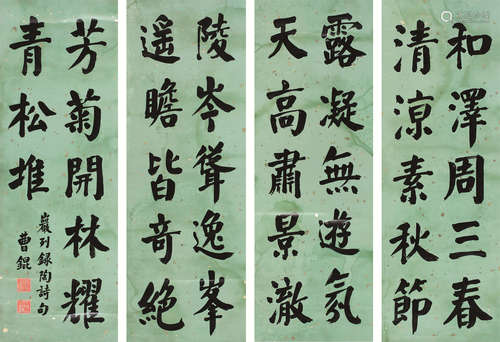 和澤周三春
清涼素秋節
露凝無遊氛
天高肅景澈
陵岑聳逸峯
遥瞻皆奇絕
芳菊開林耀
青松堆
巖列録陶詩句
曹錕